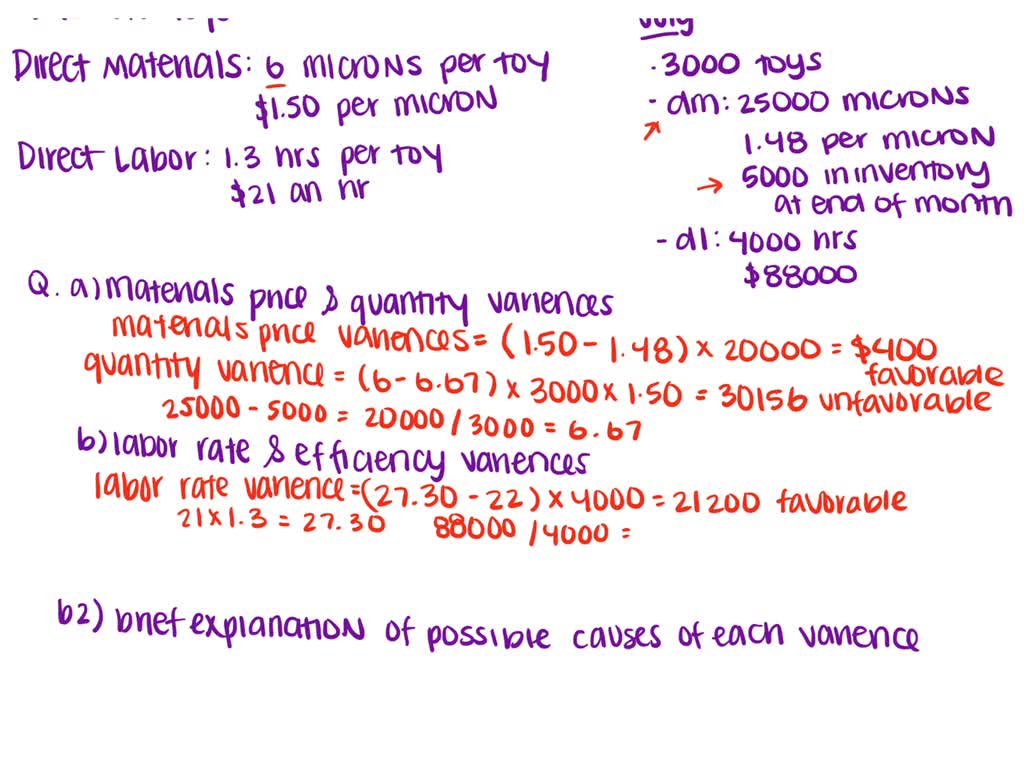 July
Direct Materials: 6 microns per toy
$1.50 per micron
Direct Labor: 1.3 hrs per toy
$21 an hr
· 3000 toys
- dm: 25000 microns
1.48 per micron
→ 5000 in inventory
at end of month
- dl: 4000 hrs
$88000
Q. a) Materials price & quantity variences
materials price variences = (1.50 - 1.48) × 20000 = $400
favorable
quantity varience = (6 - 6.67) × 3000 × 1.50 = 30156 unfavorable
25000 - 5000 = 20000 / 3000 = 6.67
b) labor rate & efficiency variences
labor rate varience = (27.30 - 22) × 4000 = 21200 favorable
21 × 1.3 = 27.30 88000 / 4000 =
b2) brief explanation of possible causes of each varience